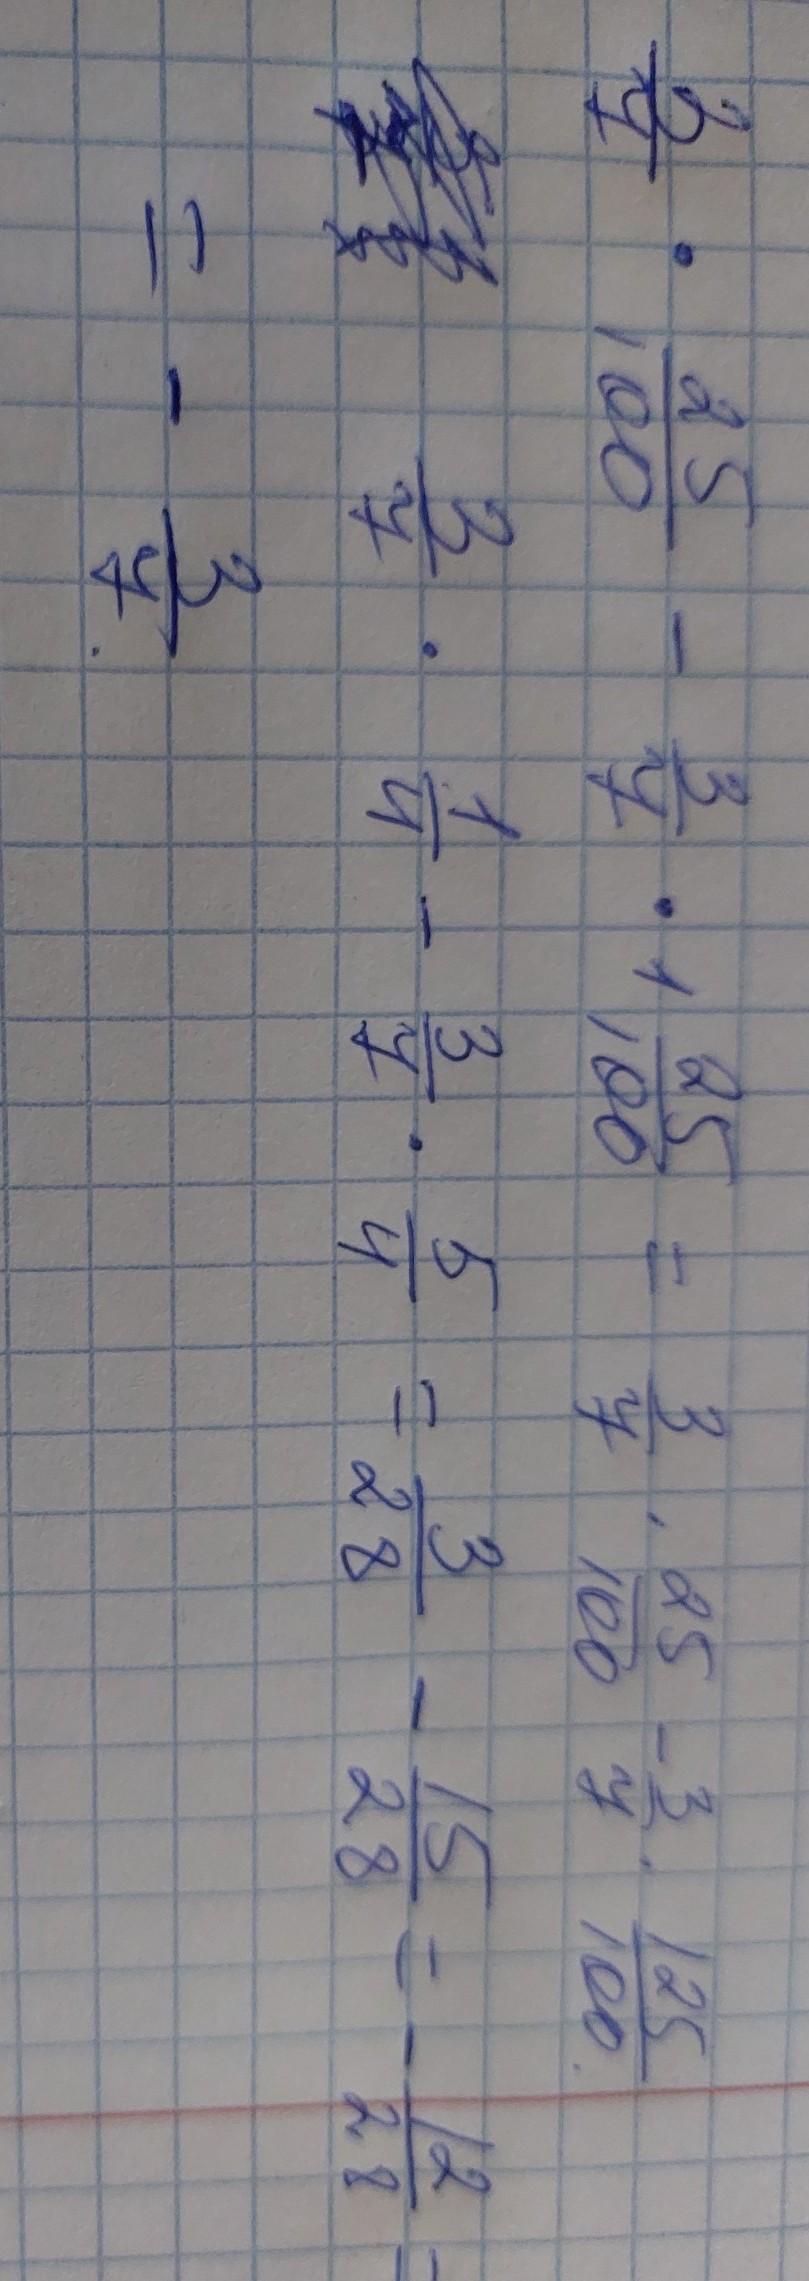 3/7 · 25/100 - 3/7 · 1 25/100 = 3/7 · 25/100 - 3/7 · 125/100.
3/7 · 1/4 - 3/7 · 5/4 = 3/28 - 15/28 = - 12/28 =
= - 3/7.